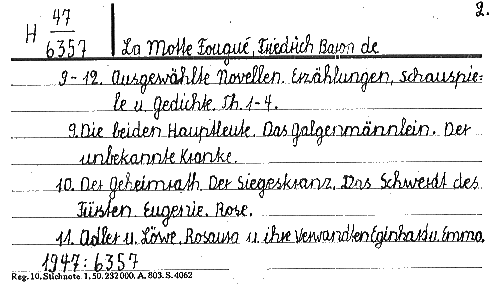 2.
H 47
6357 La Motte Fouqué, Friedrich Baron de
9-12. Ausgewählte Novellen. Erzählungen, Schauspie=
le u. Gedichte. Th. 1-4.
9. Die beiden Hauptleute. Das Galgenmännlein. Der
unbekannte Kranke.
10. Der Geheimrath. Der Siegeskranz. Das Schwerdt des
Fürsten. Eugenie. Rose.
11. Adler u. Löwe. Rosaura u. ihre Verwandten. Eginhard u. Emma.
1947: 6357
Reg. 10. Stichnote. 1, 50. 232000. A. 803. S. 4062